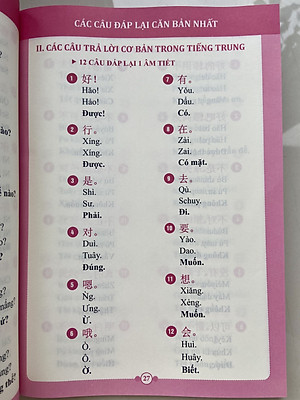 CÁC CÂU ĐÁP LẠI CĂN BẢN NHẤT
II. CÁC CÂU TRẢ LỜI CƠ BẢN TRONG TIẾNG TRUNG
▶ 12 CÂU ĐÁP LẠI 1 ÂM TIẾT
1 好！
Hǎo!
Hảo!
Được!
2 行。
Xíng.
Xíng.
Được.
3 是。
Shì.
Sư.
Phải.
4 对。
Duì.
Tuây.
Đúng.
5 嗯。
Ǹg.
Ưng.
Ừ.
6 哦。
Ò.
Ô.
Ờ.
7 有。
Yǒu.
Dẩu.
Có.
8 在。
Zài.
Zai.
Có mặt.
9 去。
Qù.
Schuy.
Đi.
10 要。
Yào.
Dao.
Muốn.
11 想。
Xiǎng.
Xẻng.
Muốn.
12 会。
Huì.
Huây.
Biết.
27